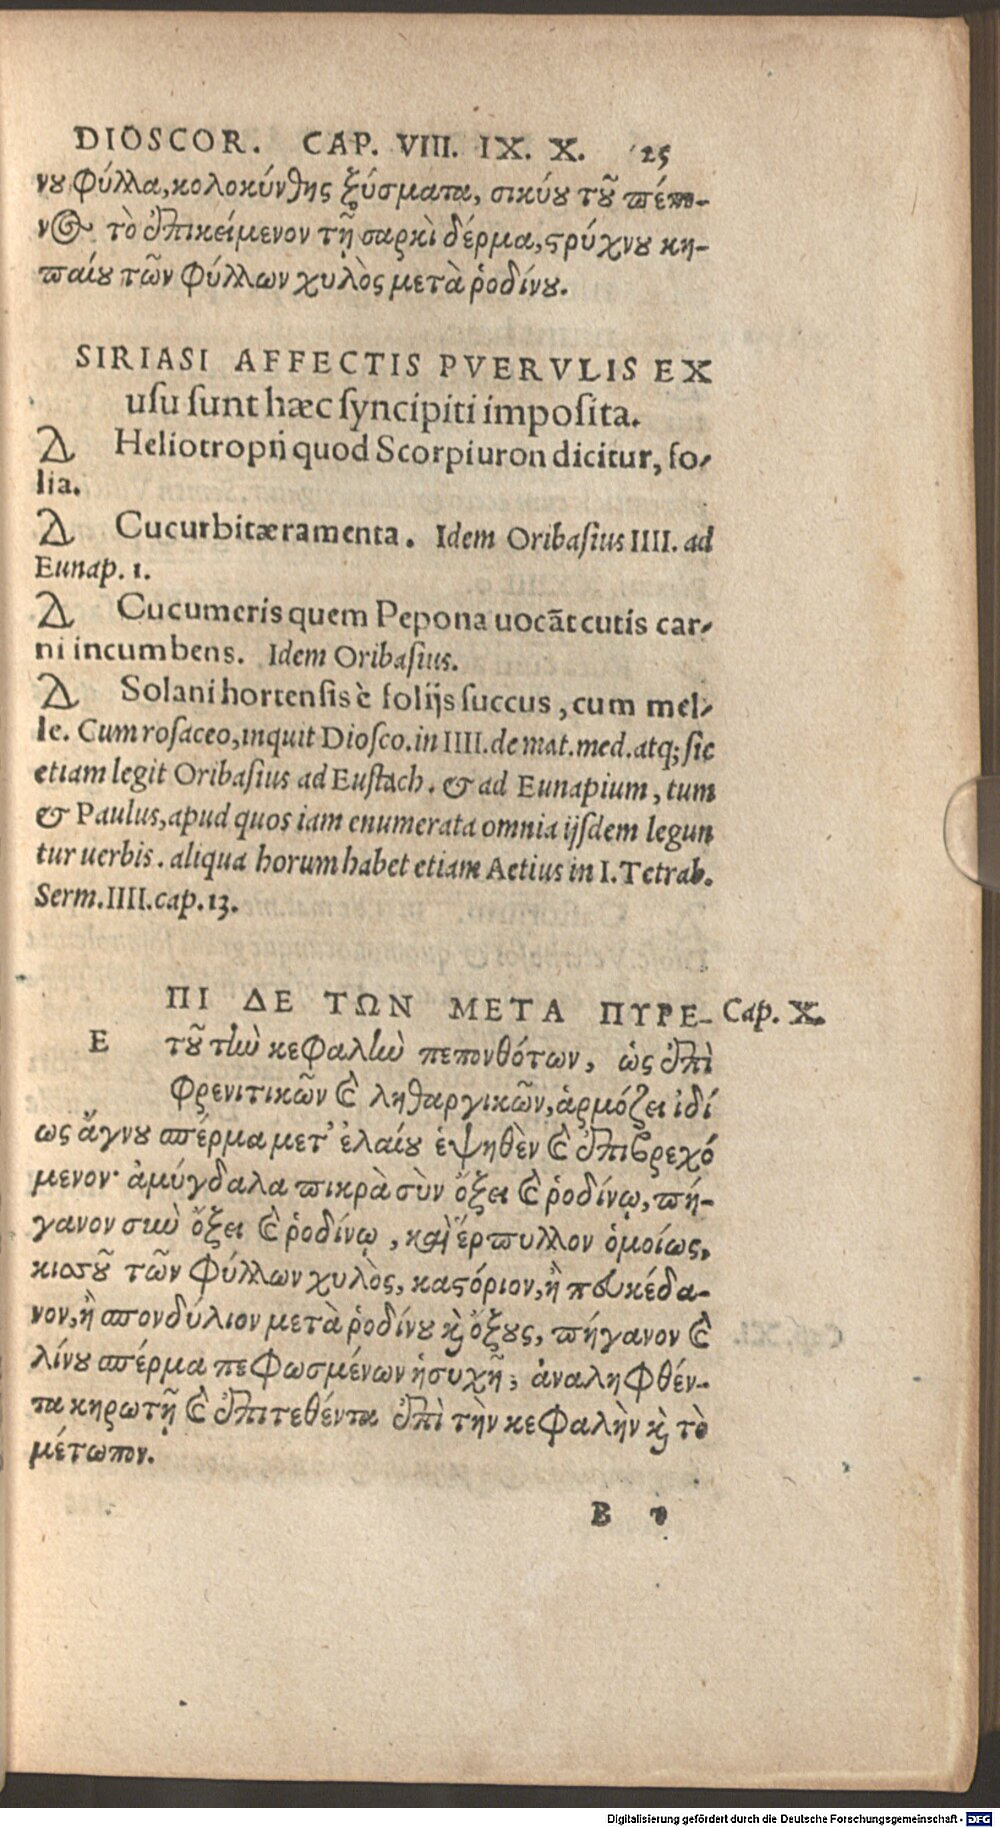 DIOSCOR. CAP. VIII. IX. X. 25
νου φύλλα, κολοκύνθης ξύσματα, σικύου τοῦ πέπο-
νος τὸ ἐπικείμενον τῇ σαρκὶ δέρμα, στρύχνου κη-
παίου τῶν φύλλων χυλὸς μετὰ ῥοδίνου.
SIRIASI AFFECTIS PVERVLIS EX
usu sunt hæc syncipiti imposita.
Heliotropij quod Scorpiuron dicitur, fo-
lia.
Cucurbitæ ramenta. Idem Oribasius IIII. ad
Eunap. 1.
Cucumeris quem Pepona uocãt cutis car-
ni incumbens. Idem Oribasius.
Solani hortensis è folijs succus, cum mel-
le. Cum rosaceo, inquit Diosco. in IIII. de mat. med. atq; sic
etiam legit Oribasius ad Eustach. & ad Eunapium, tum
& Paulus, apud quos iam enumerata omnia ijsdem legun
tur uerbis. aliqua horum habet etiam Aetius in I. Tetrab.
Serm. IIII. cap. 13.
ΠΙ ΔΕ ΤΩΝ ΜΕΤΑ ΠΥΡΕ- Cap. X.
Ε τοῦ τὴν κεφαλὴν πεπονθότων, ὡς ἐπὶ
φρενιτικῶν καὶ ληθαργικῶν, ἁρμόζει ἰδί
ως ἄγνου σπέρμα μετ' ἐλαίου ἑψηθὲν καὶ ἐπιβρεχό
μενον· ἀμύγδαλα πικρὰ σὺν ὄξει καὶ ῥοδίνῳ, πή-
γανον σὺν ὄξει καὶ ῥοδίνῳ, καὶ ἕρπυλλον ὁμοίως,
κισσοῦ τῶν φύλλων χυλὸς, καστόριον, ἢ πευκέδα-
νον, ἢ σπονδύλιον μετὰ ῥοδίνου καὶ ὄξους, πήγανον καὶ
λίνου σπέρμα πεφωσμένων ἡσυχῆ, ἀναληφθέν-
τα κηρωτῇ καὶ ἐπιτεθέντα ἐπὶ τὴν κεφαλὴν καὶ τὸ
μέτωπον.
B v
Digitalisierung gefördert durch die Deutsche Forschungsgemeinschaft - DFG